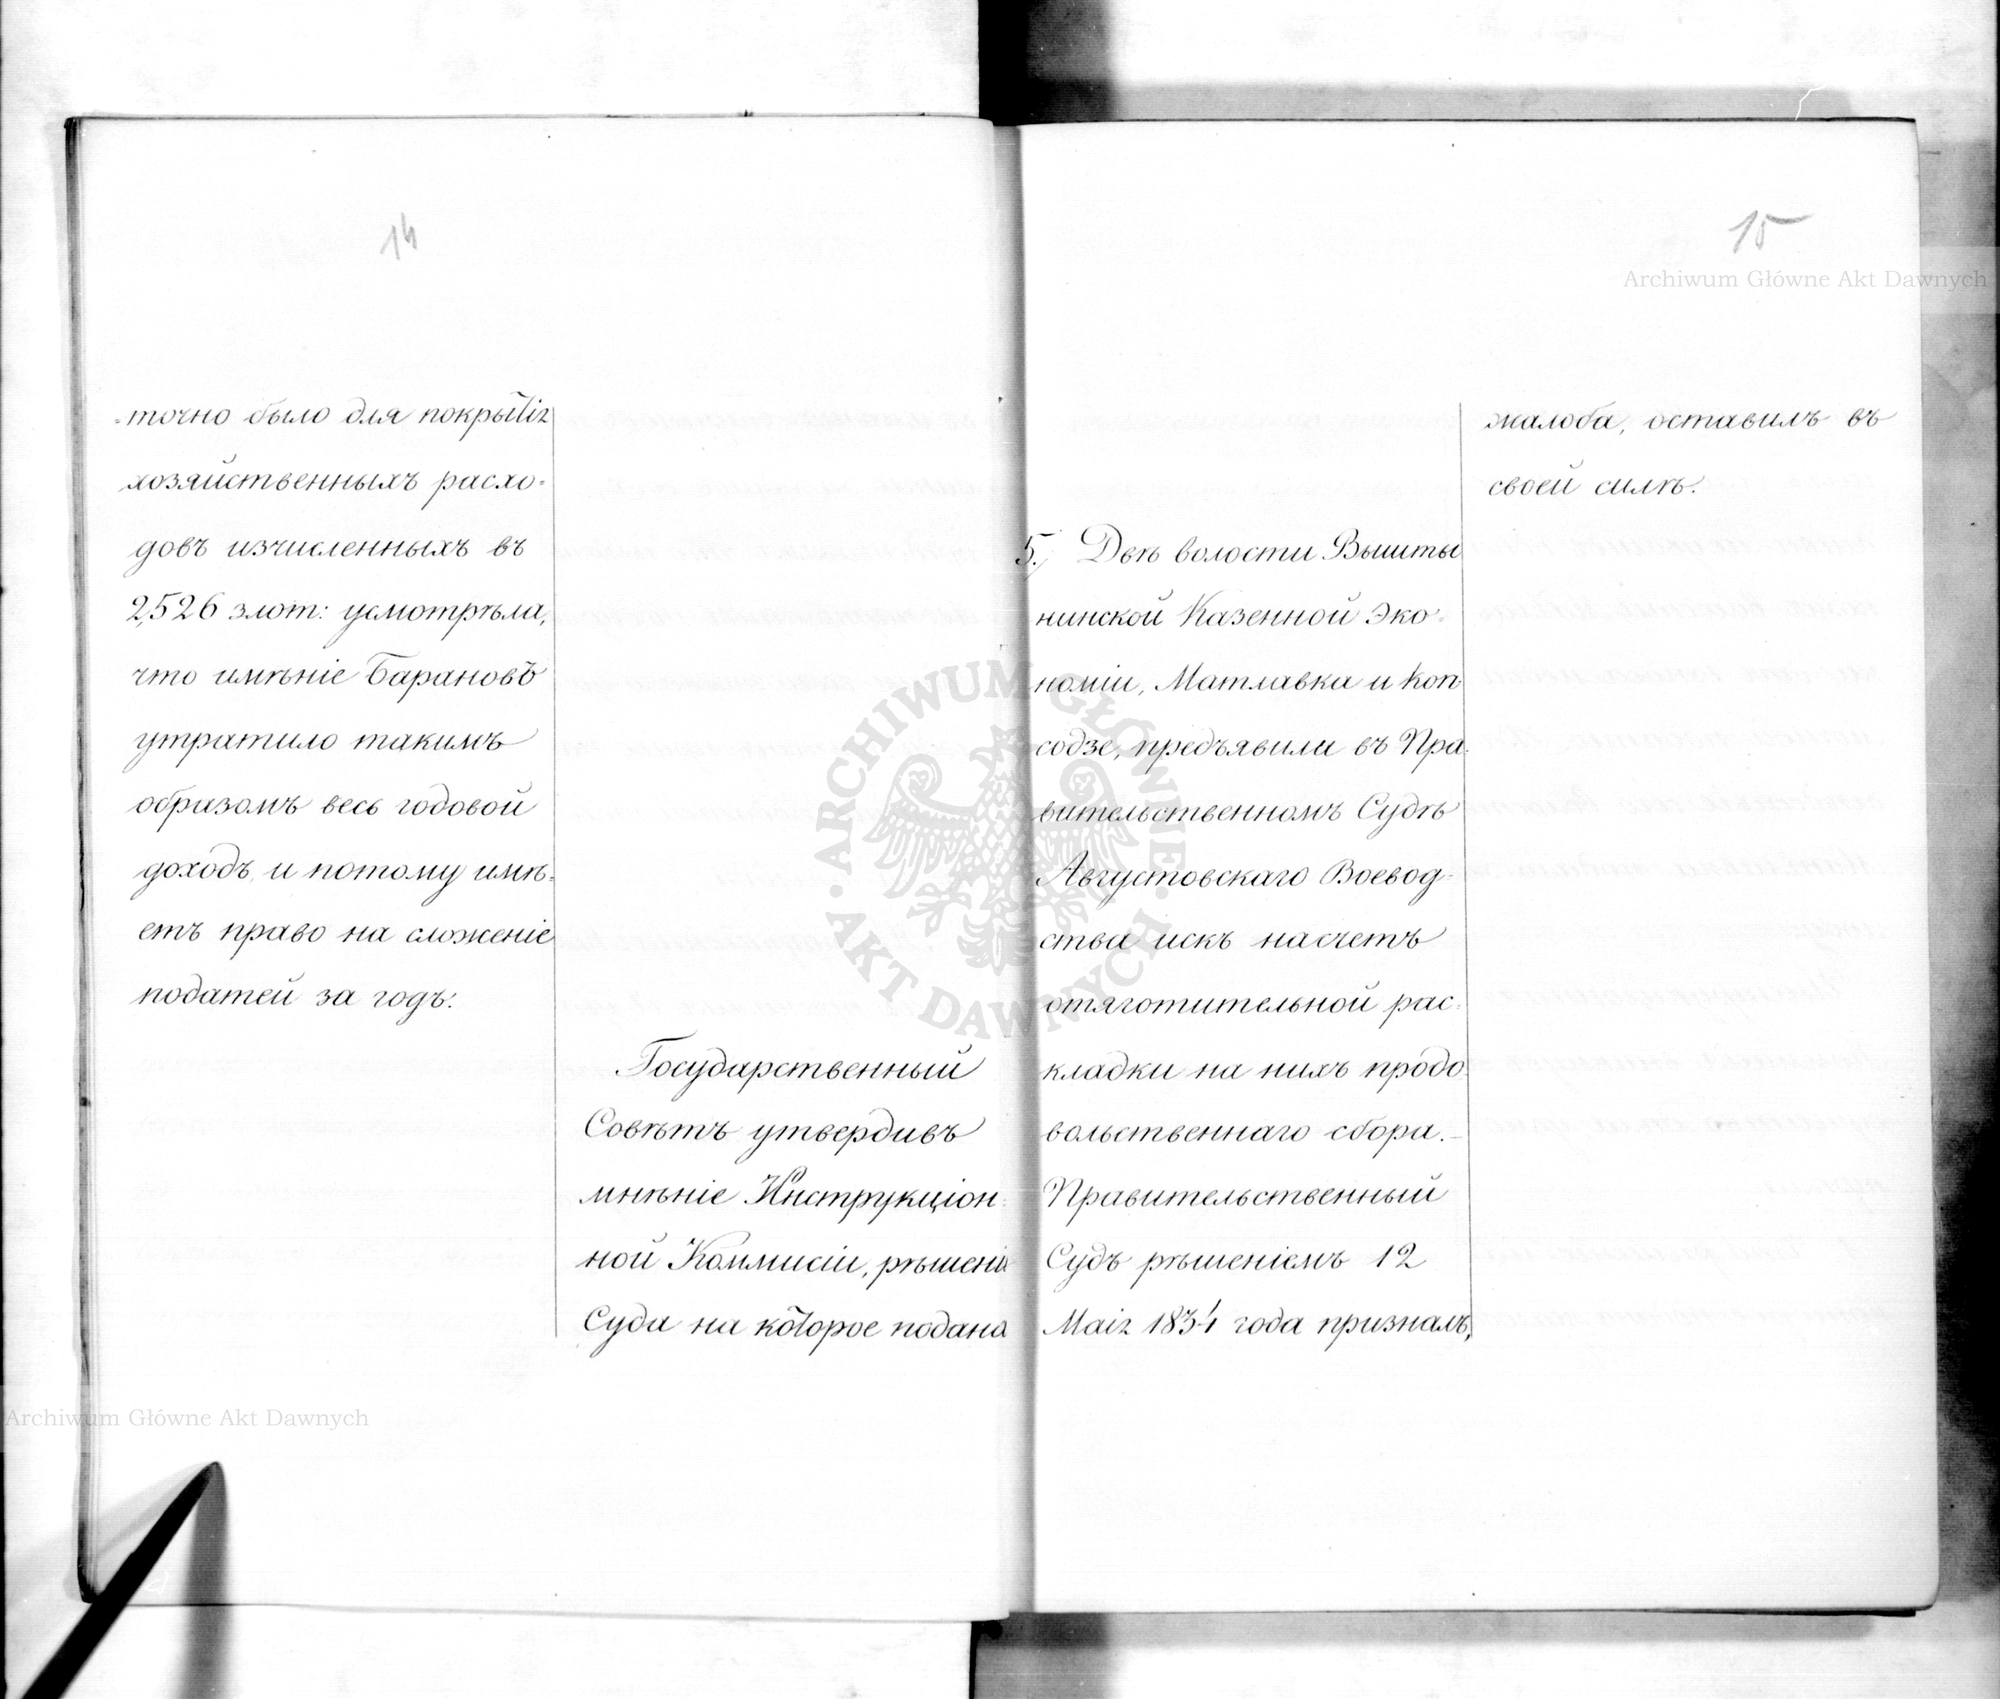 14
-точно было для покрытія
хозяйственныхъ расхо-
довъ изчисленныхъ въ
2,526 злот: усмотрѣла,
что имѣніе Барановъ
утратило такимъ
образомъ весь годовой
доходъ, и потому имѣ-
етъ право на сложеніе
податей за годъ.
Государственный
Совѣтъ утвердивъ
мнѣніе Инструкціон-
ной Коммисіи, рѣшеніе
Суда на которое подана
15
жалоба, оставилъ въ
своей силѣ.
5./ Двѣ волости Вышты
нинской Казенной Эко-
номіи, Матлавка и Коп
содзе, предъявили въ Пра-
вительственномъ Судѣ
Августовскаго Воевод-
ства искъ насчетъ
отяготительной рас-
кладки на нихъ продо-
вольственнаго сбора.-
Правительственный
Судъ рѣшеніемъ 12
Маія 1834 года призналъ,
Archiwum Główne Akt Dawnych
ARCHIWUM GŁÓWNE AKT DAWNYCH
Archiwum Główne Akt Dawnych